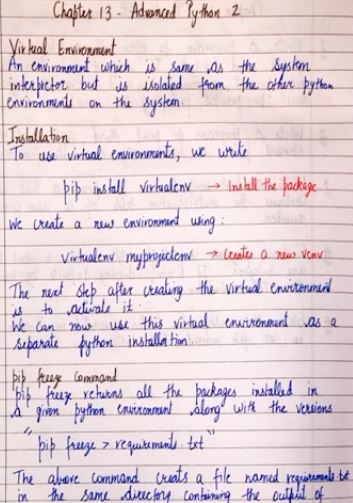 Chapter 13 - Advanced Python 2
Virtual Environment
An environment which is same as the system
interpreter but is isolated from the other python
environments on the system
Installation
To use virtual environments, we write
pip install virtualenv → Install the package
We create a new environment using:
virtualenv myprojectenv → creates a new venv
The next step after creating the virtual environment
is to activate it.
We can now use this virtual environment as a
separate python installation
pip freeze command
pip freeze returns all the packages installed in
a given python environment along with the versions
"pip freeze > requirements.txt"
The above command creats a file named requirements.txt
in the same directory containing the output of